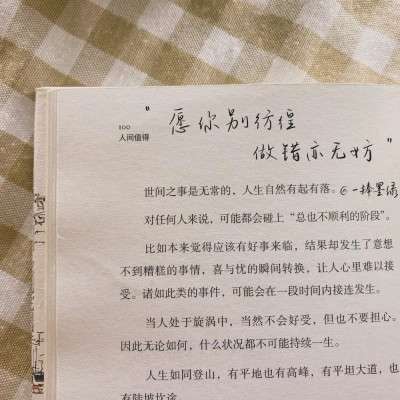 100
人间值得
“愿你别彷徨
做错亦无妨”
@一捧墨渌
世间之事是无常的，人生自然有起有落。
对任何人来说，可能都会碰上“总也不顺利的阶段”。
比如本来觉得应该有好事来临，结果却发生了意想
不到糟糕的事情，喜与忧的瞬间转换，让人心里难以接
受。诸如此类的事件，可能会在一段时间内接连发生。
当人处于旋涡中，当然不会好受，但也不要担心。
因此无论如何，什么状况都不可能持续一生。
人生如同登山，有平地也有高峰，有平坦大道，也
有陡坡坎途